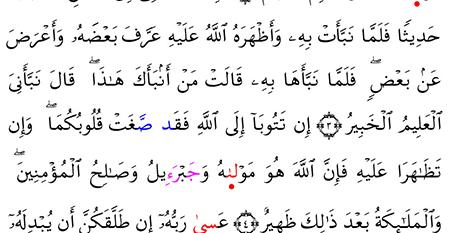 حَدِيثًا فَلَمَّا نَبَّأَتْ بِهِۦ وَأَظْهَرَهُ ٱللَّهُ عَلَيْهِ عَرَّفَ بَعْضَهُۥ وَأَعْرَضَ
عَنۢ بَعْضٍۖ فَلَمَّا نَبَّأَهَا بِهِۦ قَالَتْ مَنْ أَنۢبَأَكَ هَـٰذَاۖ قَالَ نَبَّأَنِىَ
ٱلْعَلِيمُ ٱلْخَبِيرُ ﴿٣﴾ إِن تَتُوبَآ إِلَى ٱللَّهِ فَقَد صَّغَتْ قُلُوبُكُمَاۖ وَإِن
تَظَـٰهَرَا عَلَيْهِ فَإِنَّ ٱللَّهَ هُوَ مَوْلَىٰهُ وَجَبْرَءِيلُ وَصَـٰلِحُ ٱلْمُؤْمِنِينَۖ
وَٱلْمَلَـٰٓئِكَةُ بَعْدَ ذَٰلِكَ ظَهِيرٌ ﴿٤﴾ عَسىٰ رَبُّهُۥٓ إِن طَلَّقَكُنَّ أَن يُبْدِلَهُۥٓ